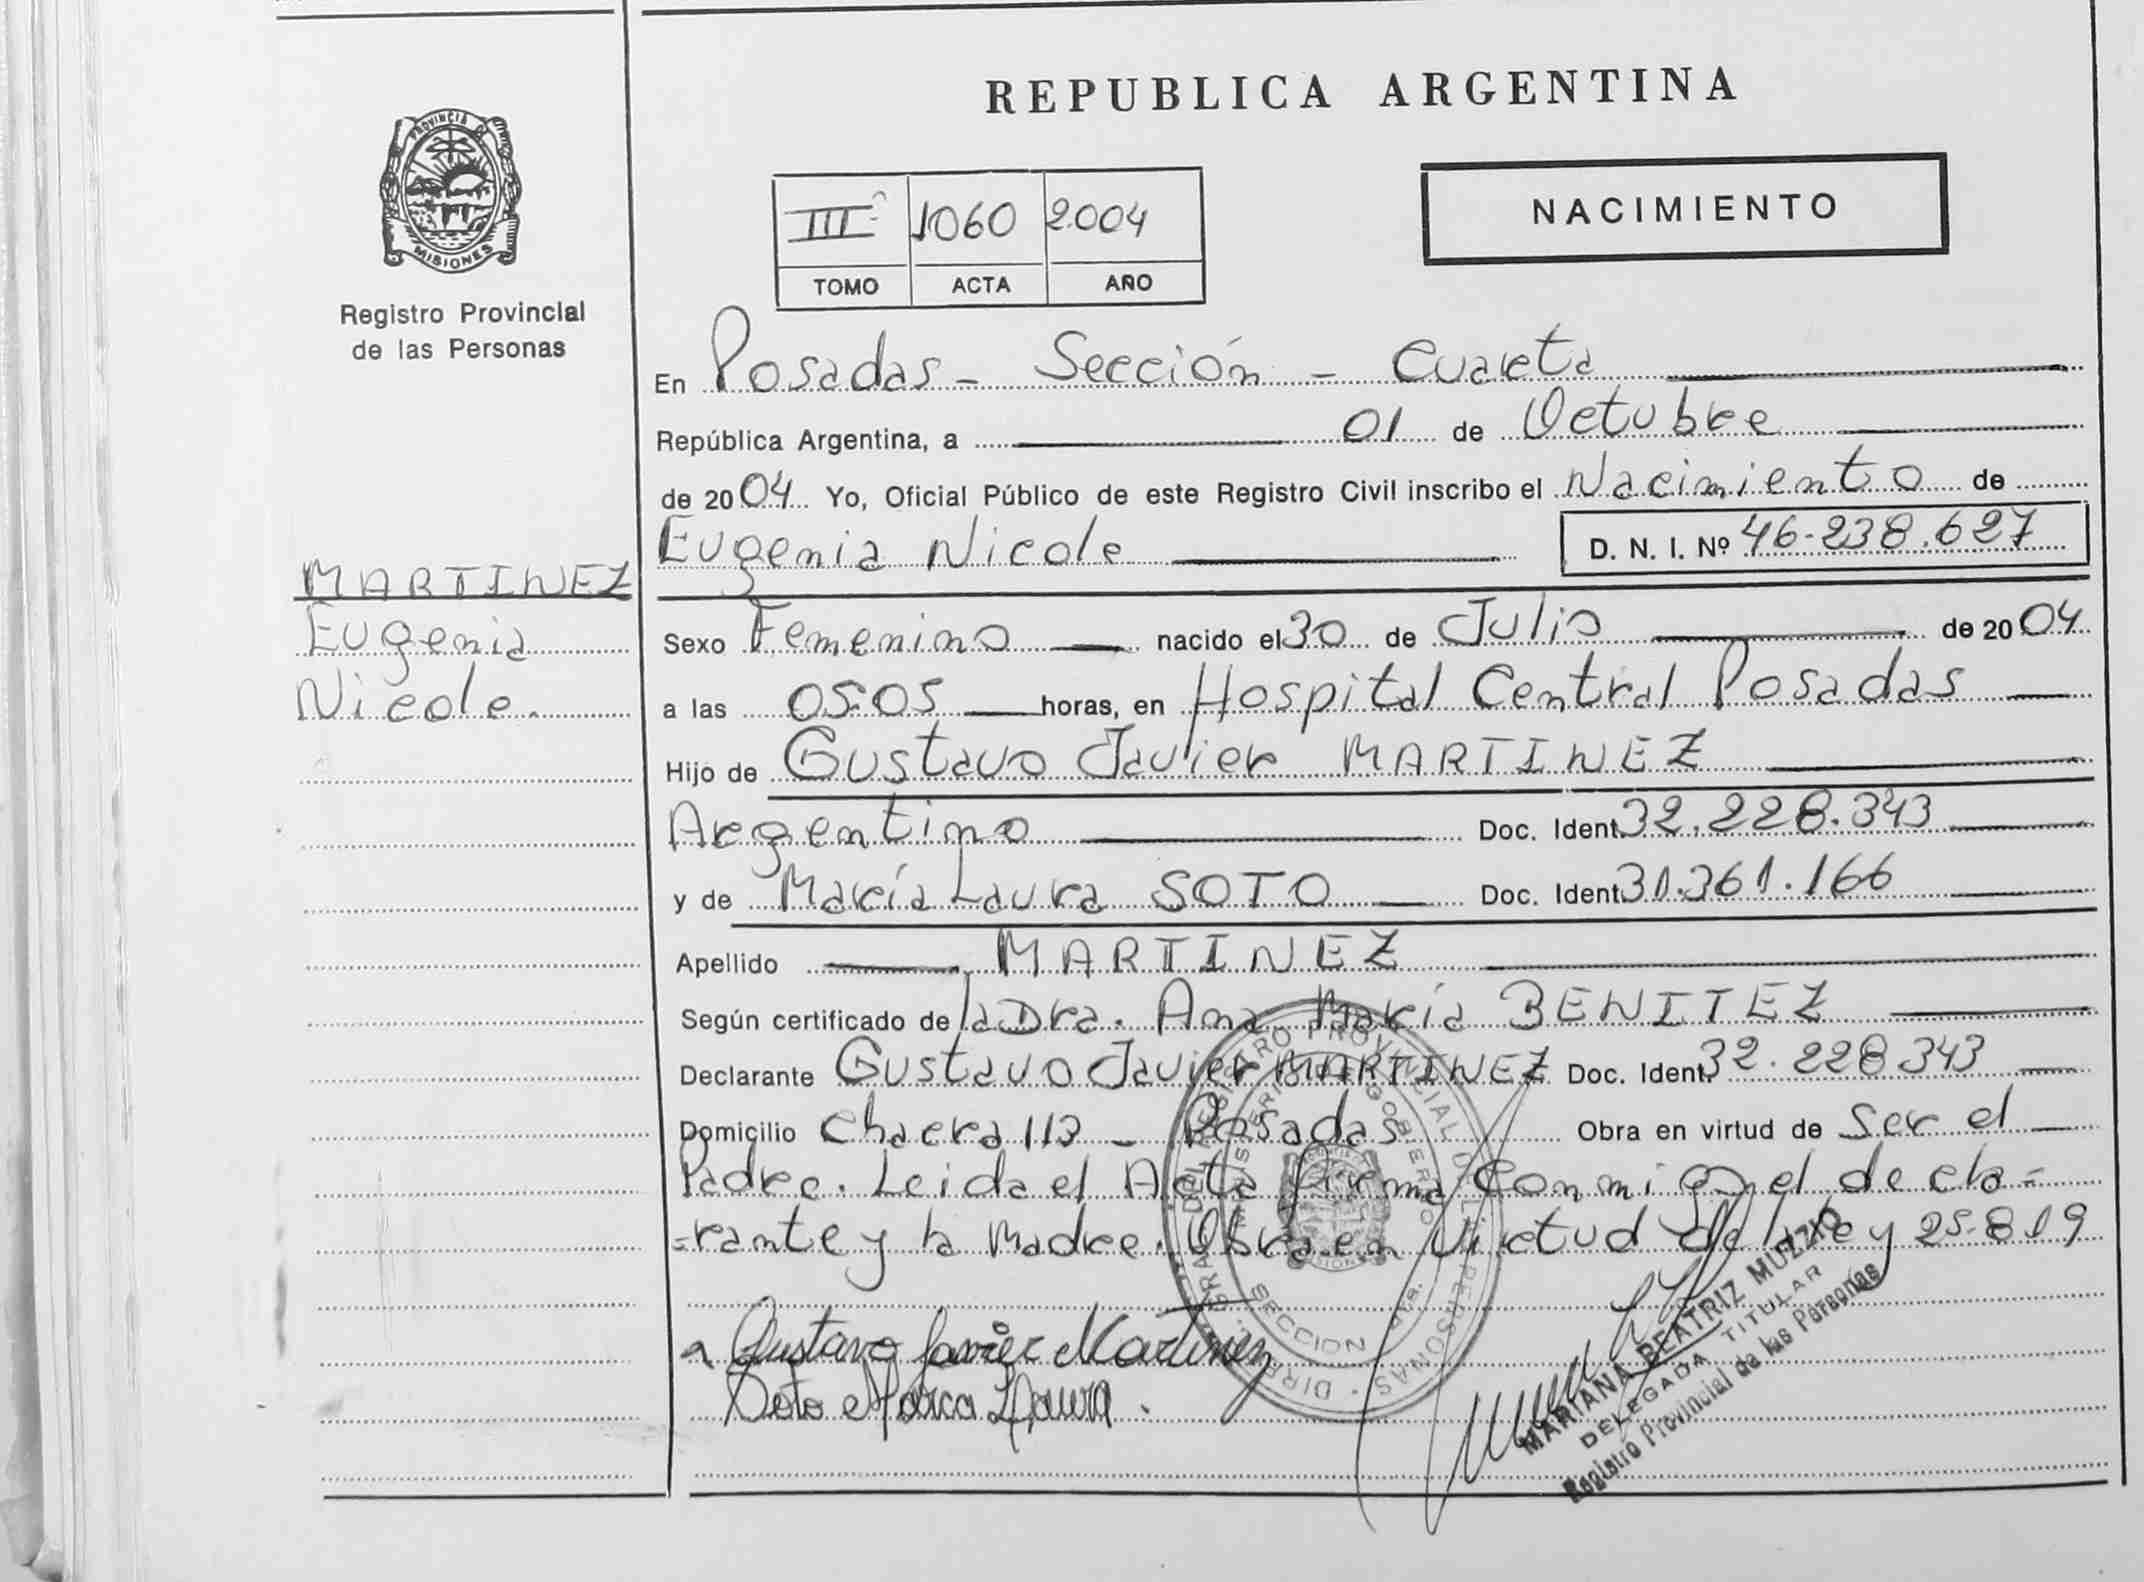 REPUBLICA ARGENTINA
PROVINCIA DE
MISIONES
Registro Provincial
de las Personas
III º 1060 2004
TOMO ACTA AÑO
NACIMIENTO
En Posadas - Sección - Cuarta
República Argentina, a 01 de Octubre
de 2004 Yo, Oficial Público de este Registro Civil inscribo el Nacimiento de
Eugenia Nicole D. N. I. Nº 46-238.627
MARTINEZ
Eugenia
Nicole.
Sexo Femenino nacido el 30 de Julio de 2004
a las 05:05 horas, en Hospital Central Posadas
Hijo de Gustavo Javier MARTINEZ
Argentino Doc. Ident. 32.228.343
y de María Laura SOTO Doc. Ident. 31.361.166
Apellido MARTINEZ
Según certificado de la Dra. Ana María BENITEZ
Declarante Gustavo Javier MARTINEZ Doc. Ident. 32.228.343
Domicilio Chacra 113 - Posadas Obra en virtud de Ser el
Padre. Leida el Acta firma Conmigo el decla=
=rante y la Madre. Obra en Virtud de la ley 25.819
Gustavo Javier Martinez
Soto Maria Laura.
DIRE. GRAL. DEL REGISTRO PROVINCIAL DE LAS PERSONAS
SECCION
MISIONES
MARIANA BEATRIZ MUZZIO
DELEGADA TITULAR
Registro Provincial de las Personas